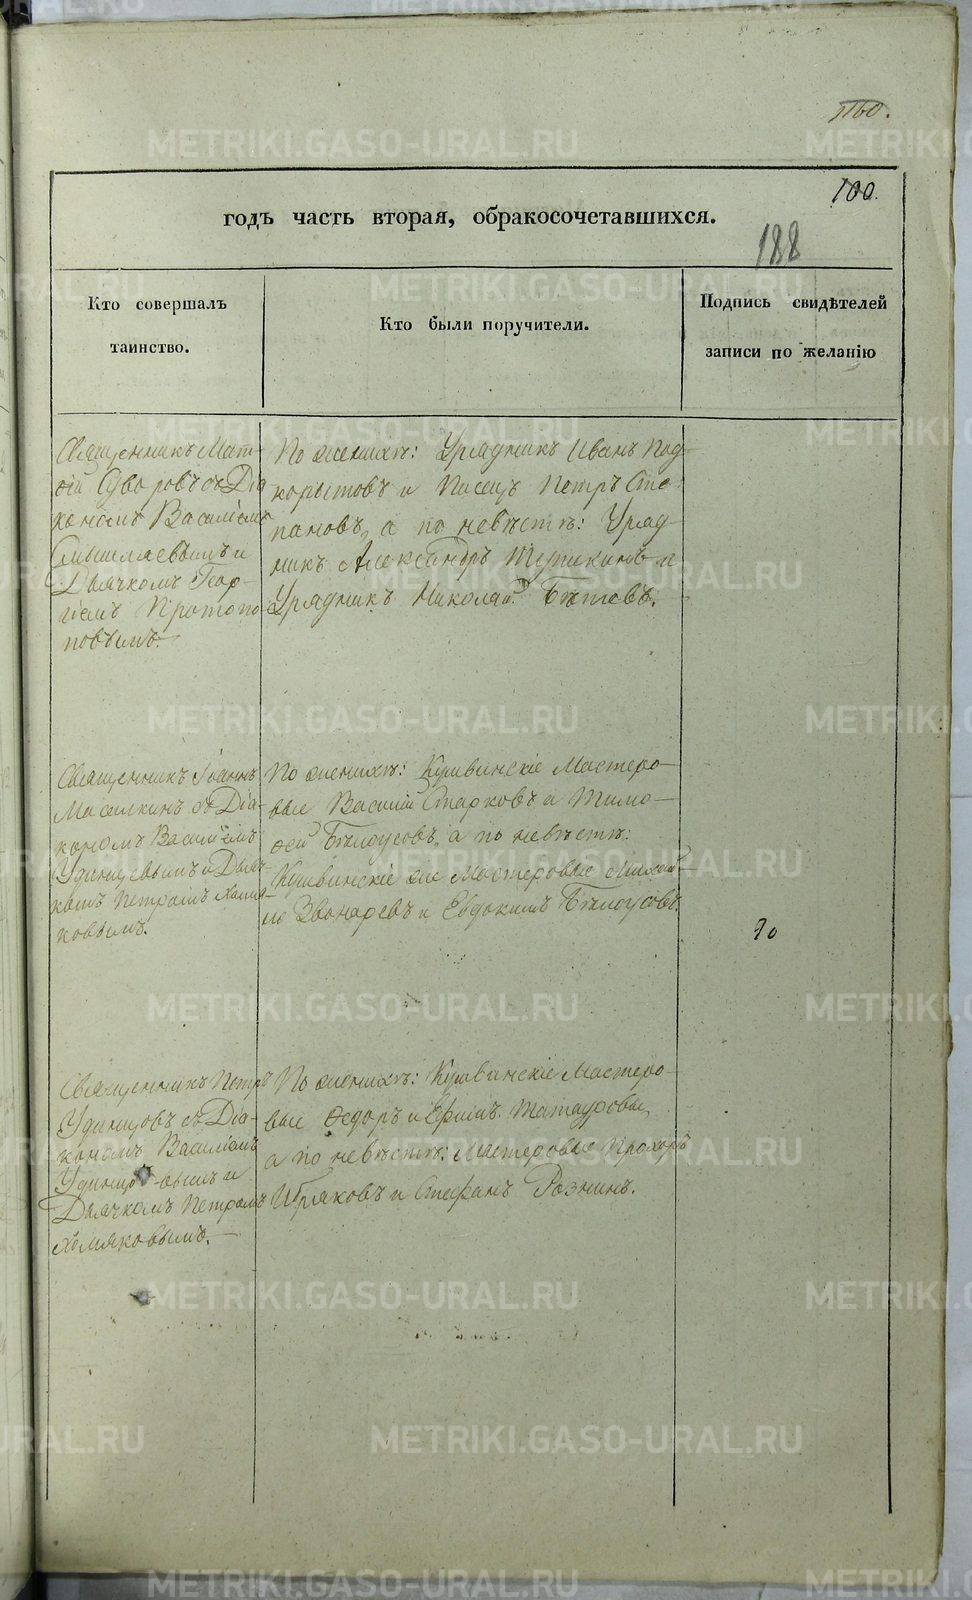 100.
годъ часть вторая, обракосочетавшихся.
188
Кто совершалъ
таинство.
Кто были поручители.
Подпись свидѣтелей
записи по желанію
Священникъ Мат-
ѳій Суворовъ съ Діа
кономъ Василіемъ
Смышляевымъ и
Дьячкомъ Геор-
гіемъ Протопо-
повымъ.
По женихѣ: Урядникъ Иванъ Под-
корытовъ и Писецъ Петръ Сте
пановъ, а по невѣстѣ: Уряд-
никъ Александръ Тупикинъ и
Урядникъ Николай
Священникъ Іоаннъ
Масалкинъ съ Діа-
кономъ Василіемъ
Удинцевымъ и Дьяч-
комъ Петромъ Хомя-
ковымъ.
По женихѣ: Кушвинскіе Мастеро-
вые Василій Старковъ и Тимо-
ѳей Бѣлоусовъ, а по невѣстѣ:
Кушвинскіе же Мастеровые Михай-
ло Звонаревъ и Евдокимъ Бѣлоусовъ.
90
Священникъ Петръ
Удинцовъ съ Діа-
кономъ Василіемъ
Удинцовымъ и
Дьячкомъ Петромъ
Хомяковымъ.
По женихѣ: Кушвинскіе Мастеро-
вые Ѳедоръ и Ефимъ Татауровы,
а по невѣстѣ: Мастеровые Прохоръ
и Стефанъ Рознинъ.
METRIKI.GASO-URAL.RU